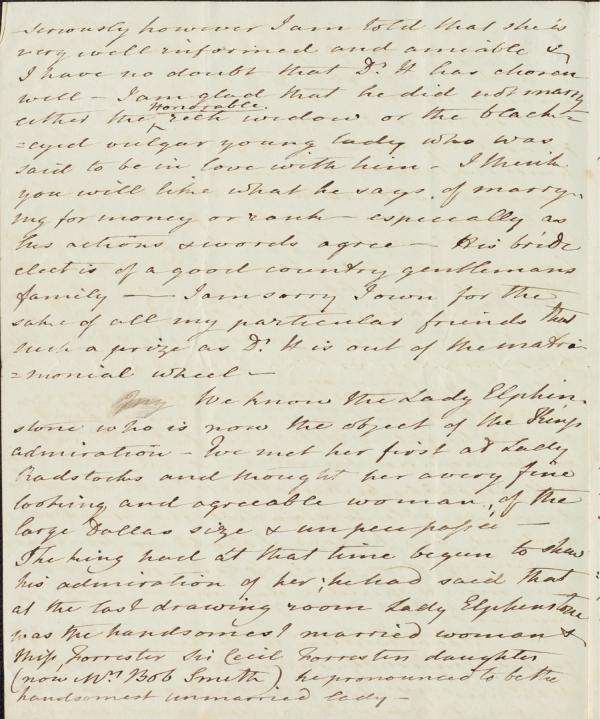 seriously however I am told that she is
very well informed and amiable &
I have no doubt that Dr. H has chosen
well – I am glad that he did not marry
either the Honorable rich widow or the black=
=eyed vulgar young lady who was
said to be in love with him – I think
you will like what he says of marry-
ing for money or rank – especially as
his actions & words agree – His bride
elect is of a good country gentlemans
family — I am sorry I own for the
sake of all my particular friends that
such a prize as Dr. H is out of the matri-
=monial wheel –
We know the Lady Elphin-
stone who is now the object of the Kings
admiration – We met her first at Lady
Radstocks and thought her a very fine
looking and agreeable woman, of the
large Dallas size & un peu passée –
The king had at that time begun to shew
his admiration of her; he had said that
at the last drawing room Lady Elphinstone
was the handsomest married woman &
Miss Forrester Sir Cecil Forresters daughter
(now Mrs Bob Smith) he pronounced to be the
handsomest unmarried lady –